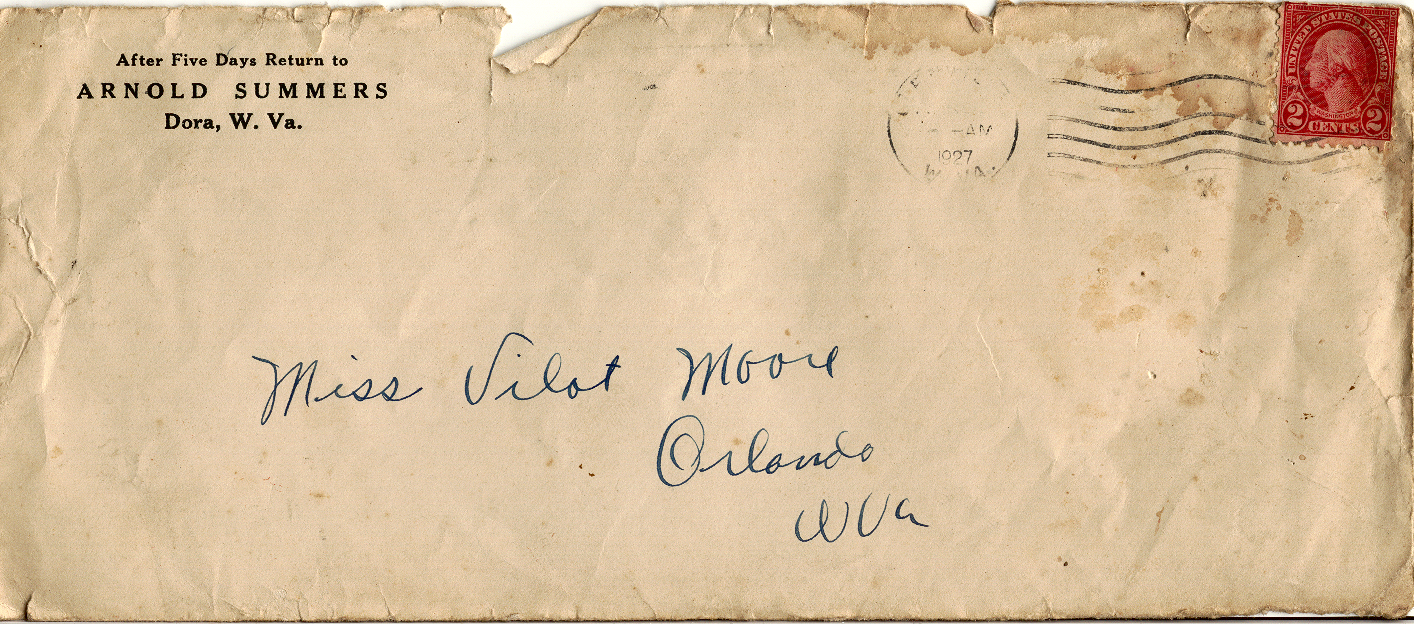 After Five Days Return to
ARNOLD SUMMERS
Dora, W. Va.
AM
1927
UNITED STATES POSTAGE
WASHINGTON
2 CENTS 2
Miss Vilot Moore
Orlando
W Va